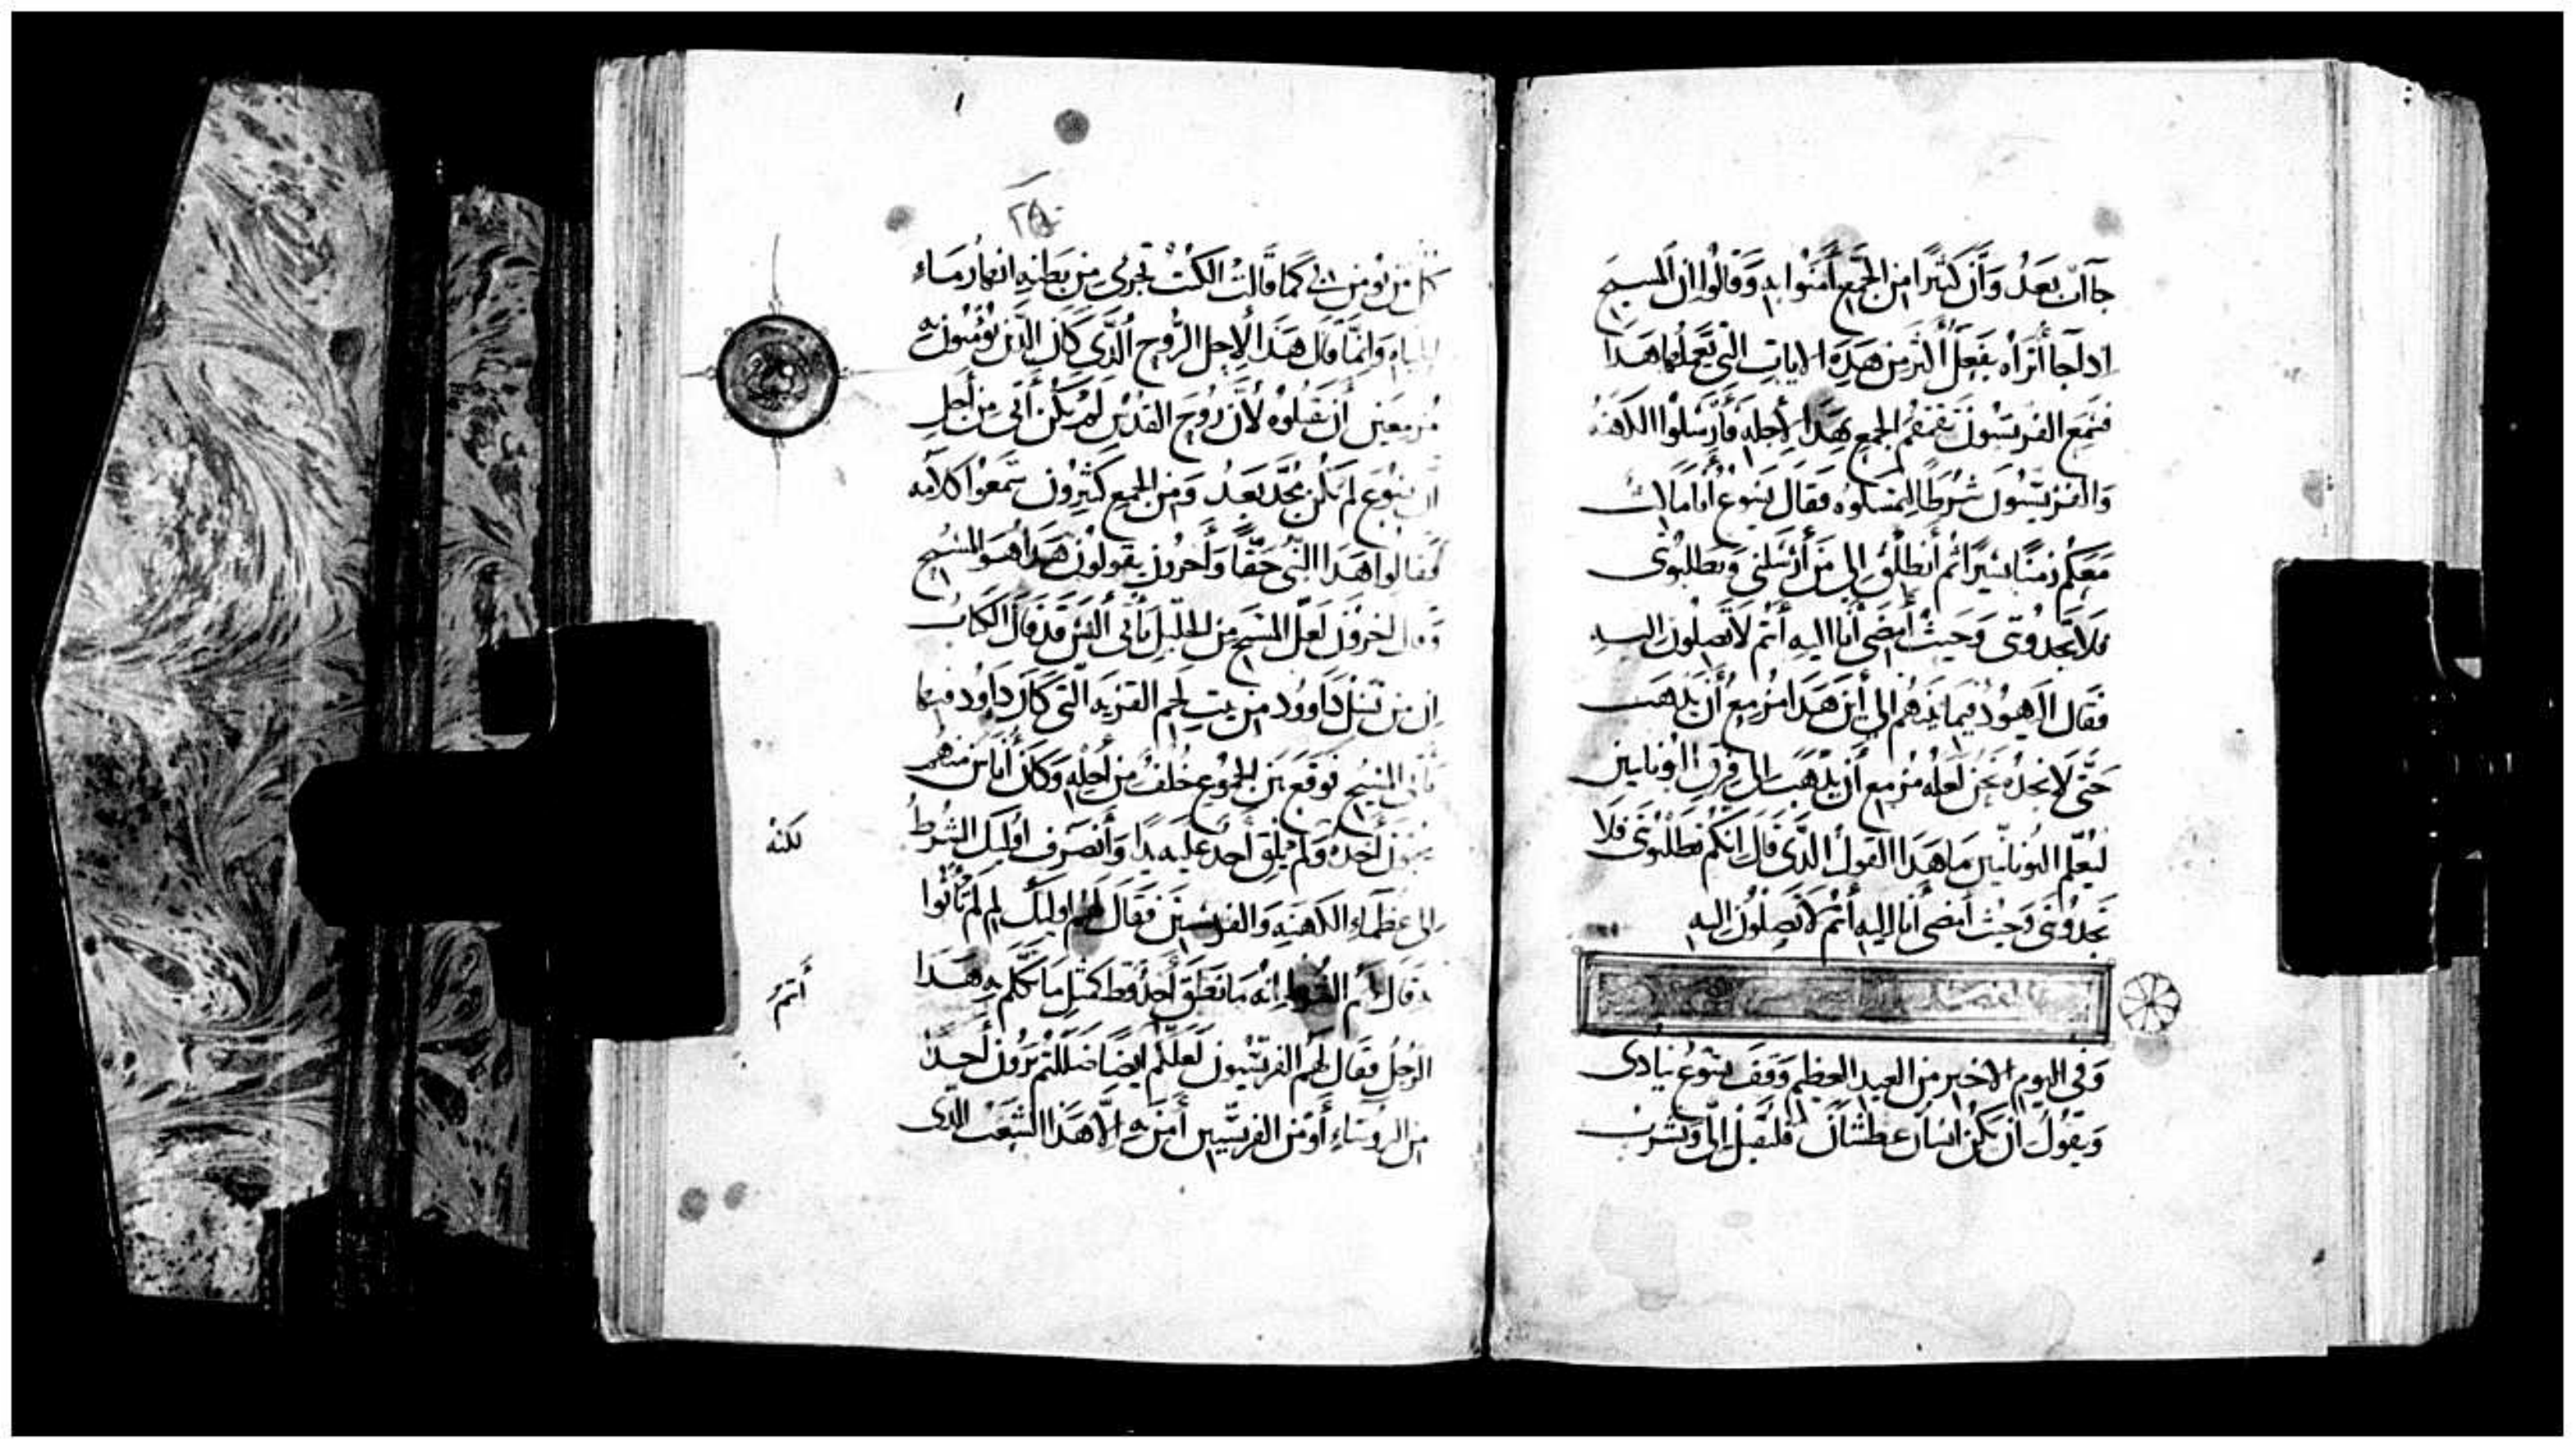 جاآن بعد وَأَن كثيرًا من الجمع أمنوا به وَقَالُوا ان المسيح
اداجا أتراه يفعل أكثر من هذه الايات التى يعملها هذا
فسمع الفريسيون تقمقم الجمع بهذا لأجله فأرسلوا الكهنه
والفريسيون شرطا ليمسكوه فقال يسوع أنا مالث
معكم زمنًا يسيرًا ثم أنطلق الى من أرسلنى وتطلبونى
فلا تجدونى وحيث أمضى أنا اليه أنتم لا تصلون اليه
فقال اليهود فيما بينهم الى أين هذا مزمع أن يذهب
حتى لا نجده نحن لعله مزمع أن يذهب الى فرق اليونانيين
ليعلم اليونانيين ما هذا القول الذى قال انكم تطلبونى فلا
تجدونى وحيث أمضى أنا اليه أنتم لا تصلون اليه
وفى اليوم الاخير من العيد العظيم وقف يسوع ينادى
ويقول ان يكن انسان عطشان فليقبل الىّ ويشرب
٢٥
كل من يومن بى كما قالت الكتب تجرى من بطنه انهار ماء
الحياه وانما قال هذا لأجل الروح الذى كان الذين يؤمنون به
مزمعين أن يقبلوه لأن روح القدس لم يكن أتى من أجل
ان يسوع لم يكن مجد بعد ومن الجمع كثيرون سمعوا كلامه
فقالوا هذا النبى حقًا وأخرون يقولون هذا هو المسيح
وقال اخرون لعل المسيح من الجليل يأتى أليس قد قال الكتاب
ان من نسل داوود من بيت لحم القريه التى كان داود فيها
يأتى المسيح فوقع بين الجموع خلف من أجله وكان أناس منهم
يحبون أخذه ولم يلق أحد عليه يدًا وأنصرف أوليك الشرط
لكنه
الى عظماء الكهنه والفريسيين فقال لهم اوليك لم لم تأتوا
به قال لهم الشرط انه ما نطق أحد قط كمثل ما تكلم به هذا
أنتم
الرجل فقال لهم الفريسيون لعلكم ايضًا ضللتم ترون أحدًا
من الروساء أو من الفريسيين أمن به الا هذا الشعب الذى